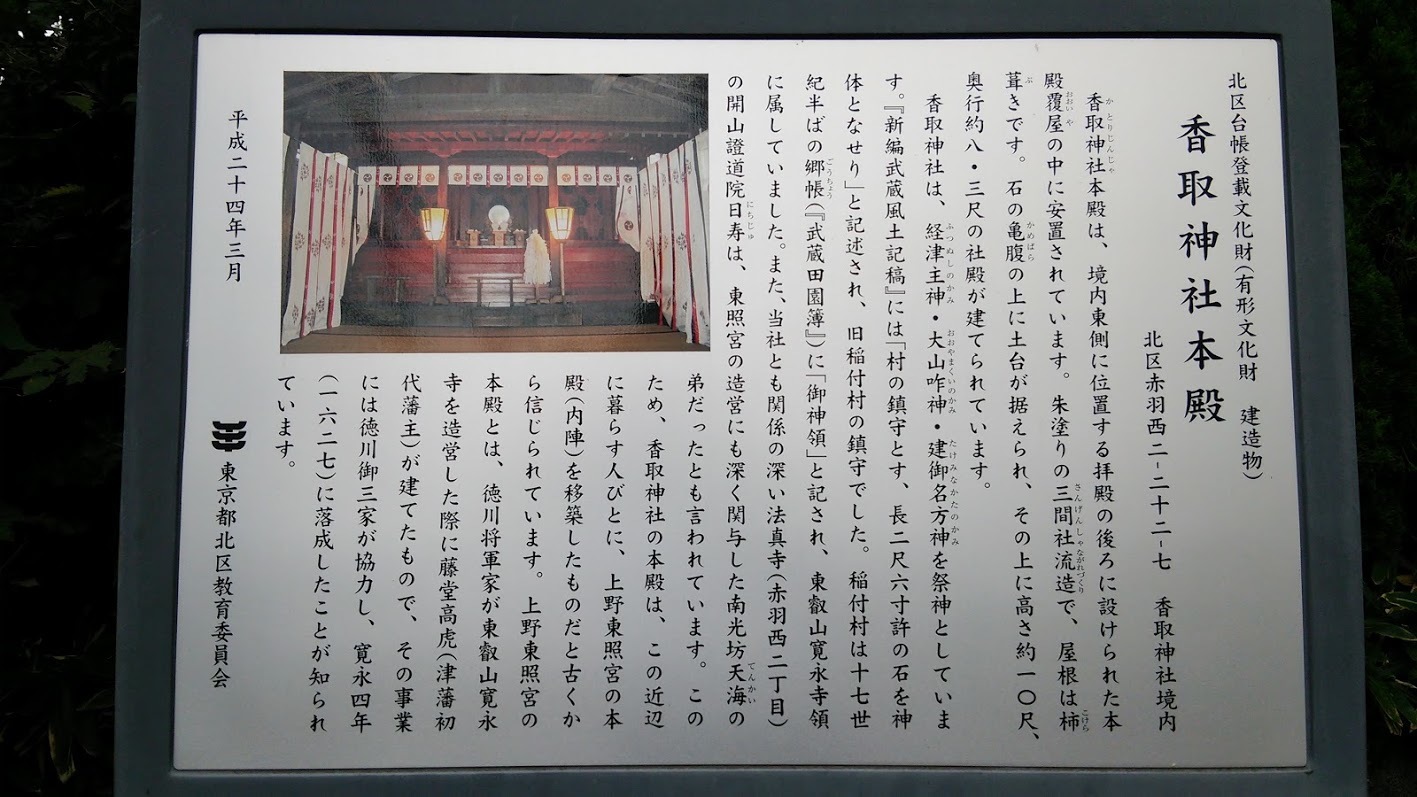 北区台帳登載文化財(有形文化財　建造物)
香取神社本殿
北区赤羽西二-二十二-七　香取神社境内
香取神社本殿は、境内東側に位置する拝殿の後ろに設けられた本
殿覆屋の中に安置されています。朱塗りの三間社流造で、屋根は杮
葺きです。石の亀腹の上に土台が据えられ、その上に高さ約一〇尺、
奥行約八・三尺の社殿が建てられています。
香取神社は、経津主神・大山咋神・建御名方神を祭神としていま
す。『新編武蔵風土記稿』には「村の鎮守とす、長二尺六寸許の石を神
体となせり」と記述され、旧稲付村の鎮守でした。稲付村は十七世
紀半ばの郷帳(『武蔵田園簿』)に「御神領」と記され、東叡山寛永寺領
に属していました。また、当社とも関係の深い法真寺(赤羽西二丁目)
の開山證道院日寿は、東照宮の造営にも深く関与した南光坊天海の
弟だったとも言われています。この
ため、香取神社の本殿は、この近辺
に暮らす人びとに、上野東照宮の本
殿(内陣)を移築したものだと古くか
ら信じられています。上野東照宮の
本殿とは、徳川将軍家が東叡山寛永
寺を造営した際に藤堂高虎(津藩初
代藩主)が建てたもので、その事業
には徳川御三家が協力し、寛永四年
(一六二七)に落成したことが知られ
ています。
平成二十四年三月
東京都北区教育委員会
かとりじんじゃ
おおいや
さんげんしゃながれづくり
こけら
ぶ
かめばら
ふつぬしのかみ
おおやまくいのかみ
たけみなかたのかみ
ごうちょう
にちじゅ
てんかい